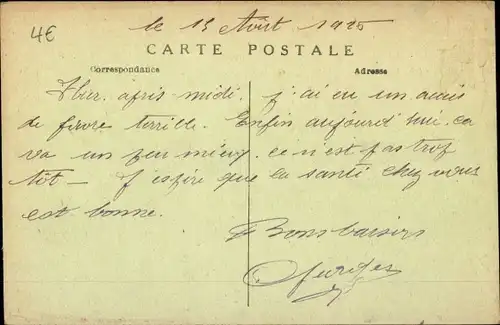 4€
le 13 Août 1925
CARTE POSTALE
Correspondance
Adresse
Hier après midi j'ai eu un accès
de fièvre terrible. Enfin aujourd'hui ca
va un peu mieux. ce n'est pas trop
tôt - J'espère que la santé chez vous
est bonne.
Bons baisers